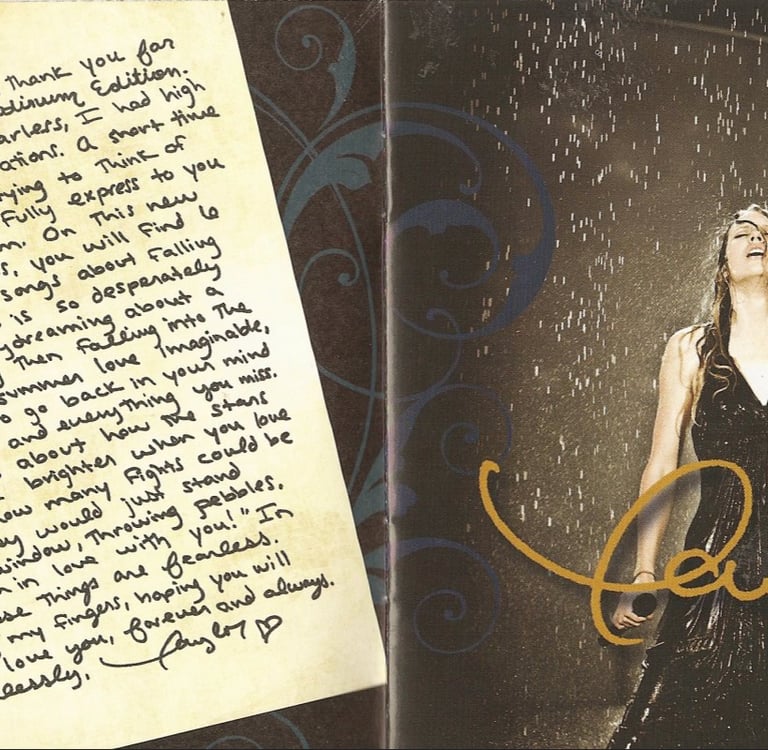 Thank you for
Platinum Edition.
Fearless, I had high
ations. A short time
rying to Think of
Fully express to you
On This new
s, you will find 6
songs about Falling
is so desperately
ydreaming about a
Then falling into The
summer love Imaginable,
o go back in your mind
and everything you miss.
about how The stars
brighter when you love
how many fights could be
ay would just stand
window, Throwing pebbles,
in love with you!" In
se Things are fearless.
my fingers, hoping you will
love you, forever and always.
lessly,
Taylor